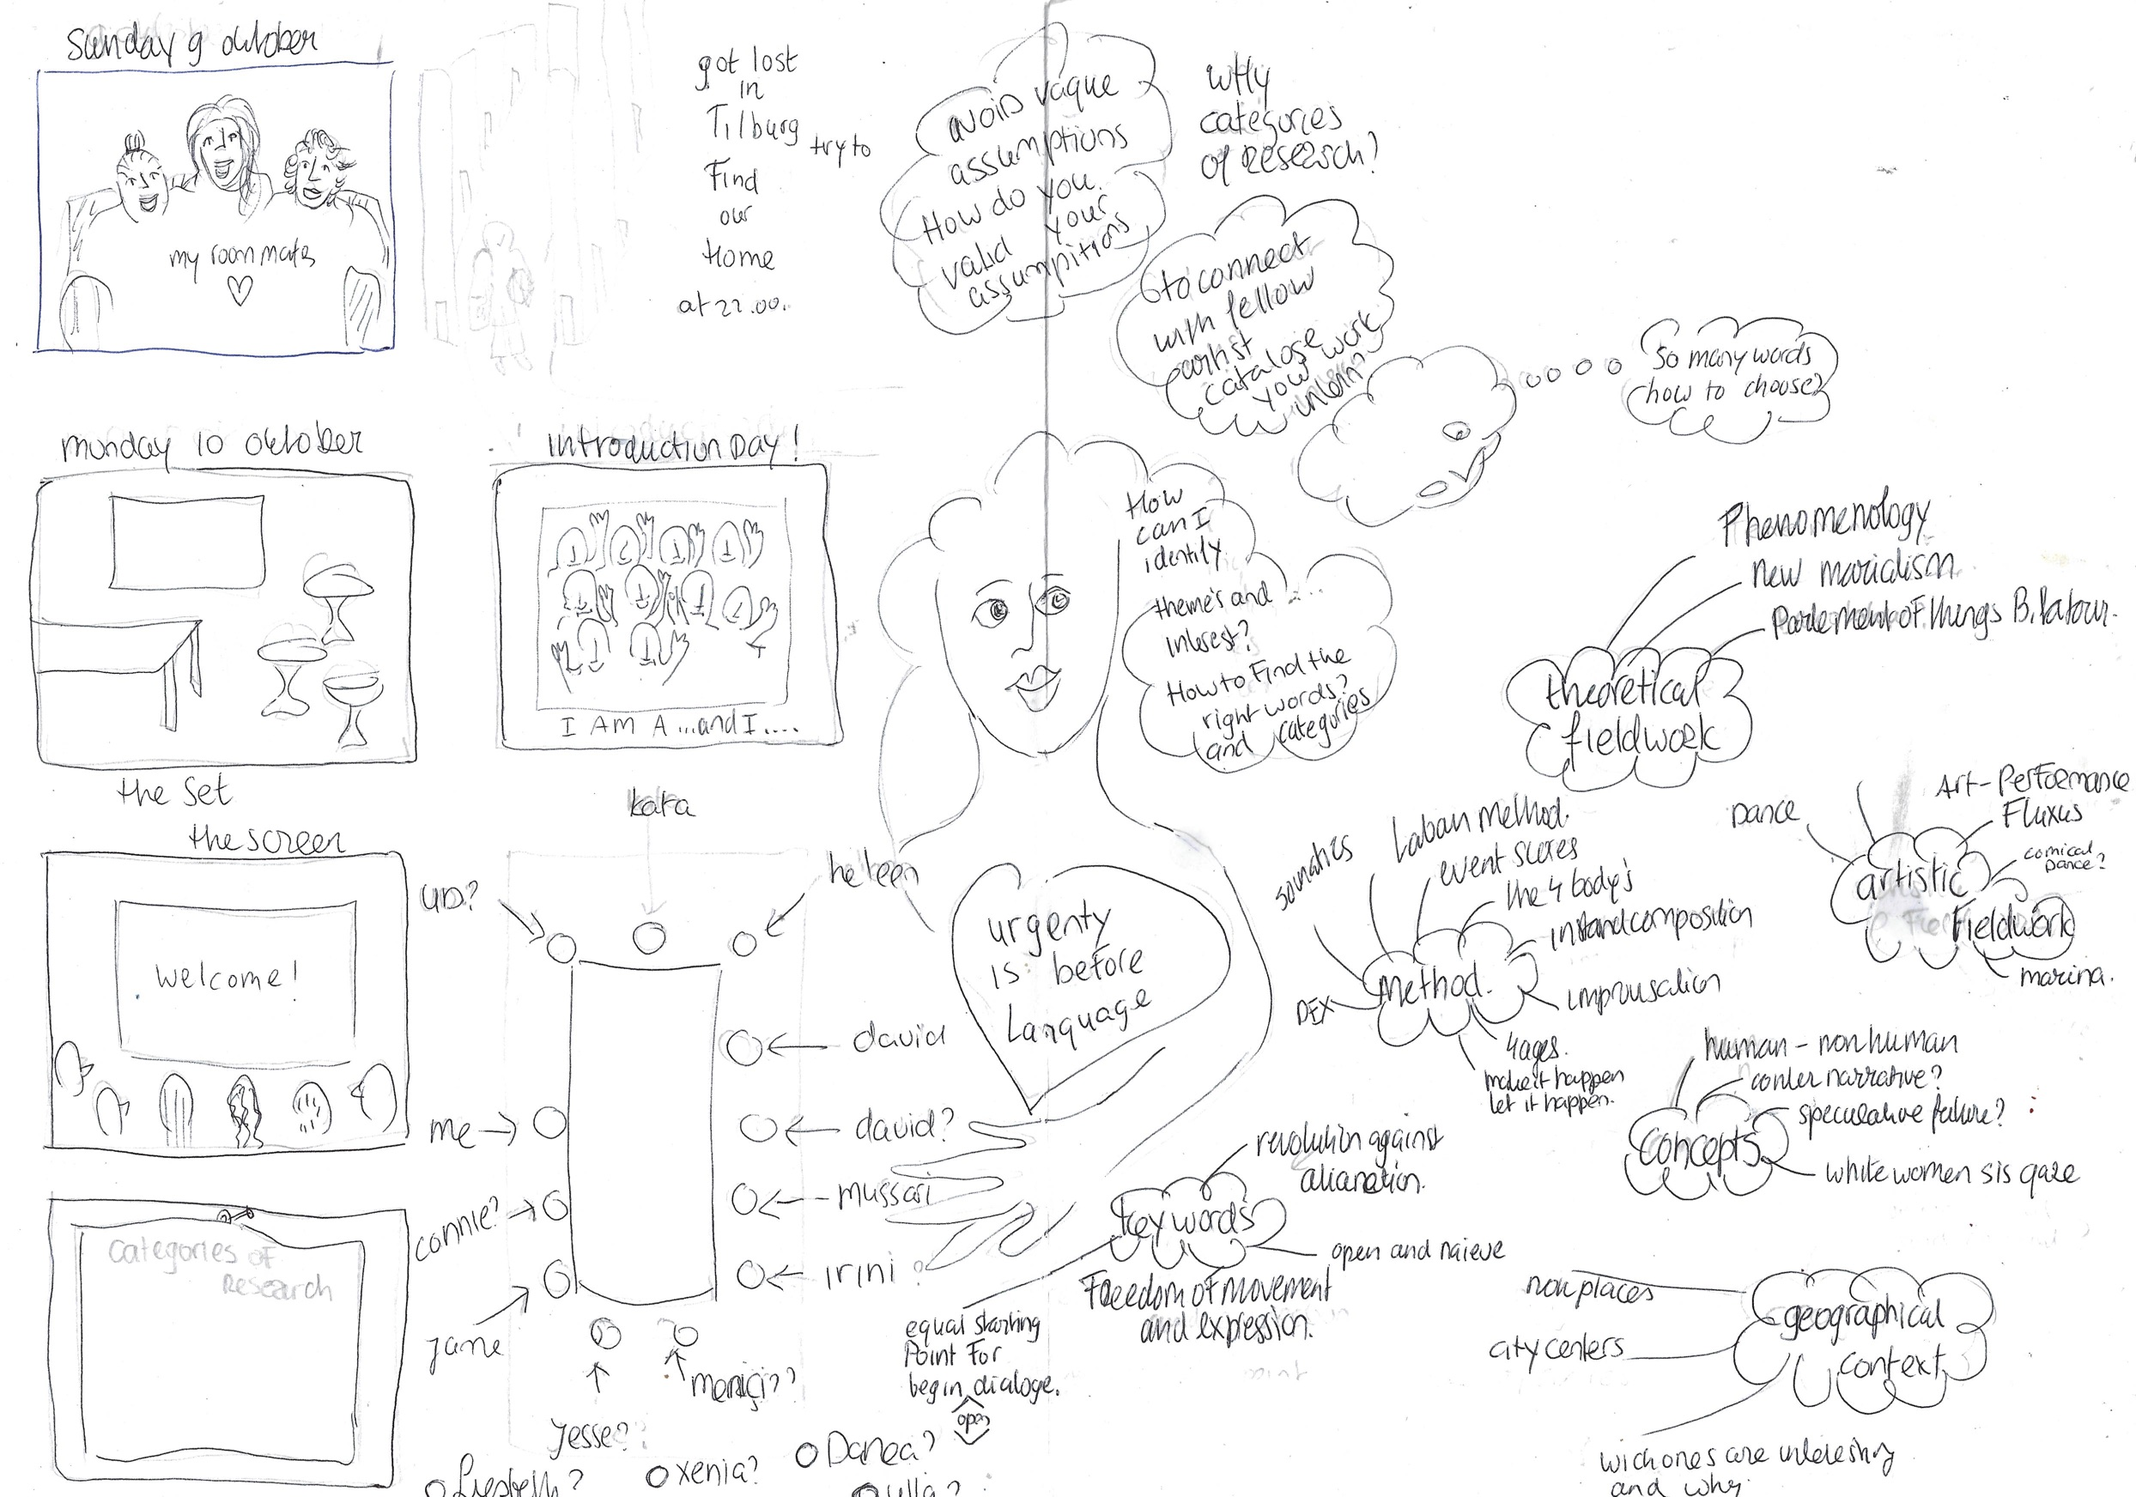 Sunday 9 october
my roommates
got lost
in
Tilburg
try to
Find
our
Home
at 22.00.
avoid vague
assumptions
How do you
valid your
assumpitions
WHy
categories
of research?
to connect
with fellow
artist
catalose work
you
unlearn
So many words
how to choose?
munday 10 october
the set
introduction Day!
I AM A ...and I....
How
can I
identify
theme's and
interest?
How to Find the
right words?
and categories
the screen
welcome!
Categories of
Research
kata
heleen
david
david?
mussari
irini?
me
connie?
jane
Jesse?
Liesbeth?
xenia?
Danea?
ulla?
urgenty
is before
Language
Phenomenology
new marialism
Parlement of things B. Latour.
theoretical
fieldwork
Dance
Art-Performance
Fluxus
comical
Dance?
artistic
Fieldwork
marina.
somatics
Laban method.
event scores
the 4 body's
instandcomposition
improvisation
Method.
DEX
4 ages.
make it happen
let it happen.
human - nonhuman
conter narrative?
speculative future?
concepts
white women sis gaze
revolution against
alianation.
keywords
open and naieve
Freedom of movement
and expression.
equal starting
Point For
begin dialoge.
open
non places
city centers
geographical
context
wich ones are interesting
and why